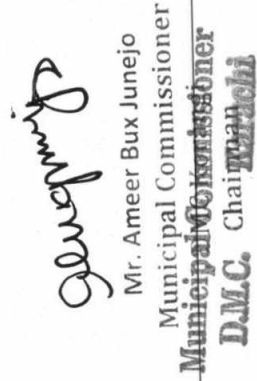 Mr. Ameer Bux Junejo
Municipal Commissioner
Municipal Commissioner
D.M.C.
Chairman
Karachi